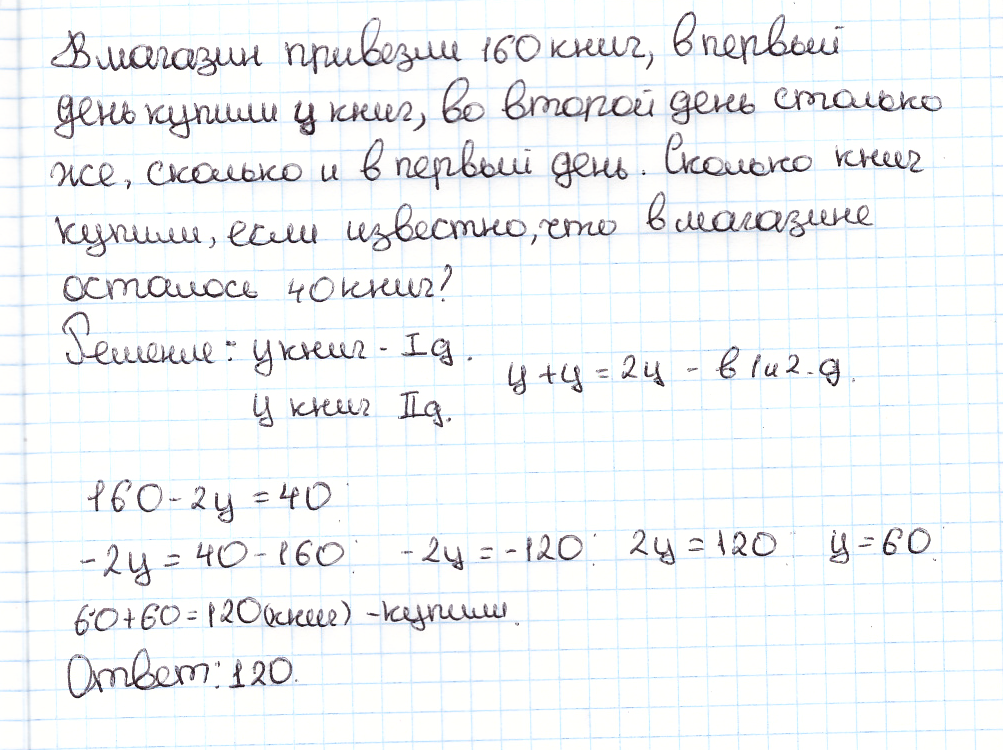 В магазин привезли 160 книг, в первый
день купили у книг, во второй день столько
же, сколько и в первый день. Сколько книг
купили, если известно, что в магазине
осталось 40 книг?
Решение: у книг - I д. у + у = 2у - в 1 и 2. д.
у книг II д.
160 - 2у = 40
-2у = 40 - 160 -2у = -120 2у = 120 у = 60
60 + 60 = 120 (книг) - купили.
Ответ: 120.